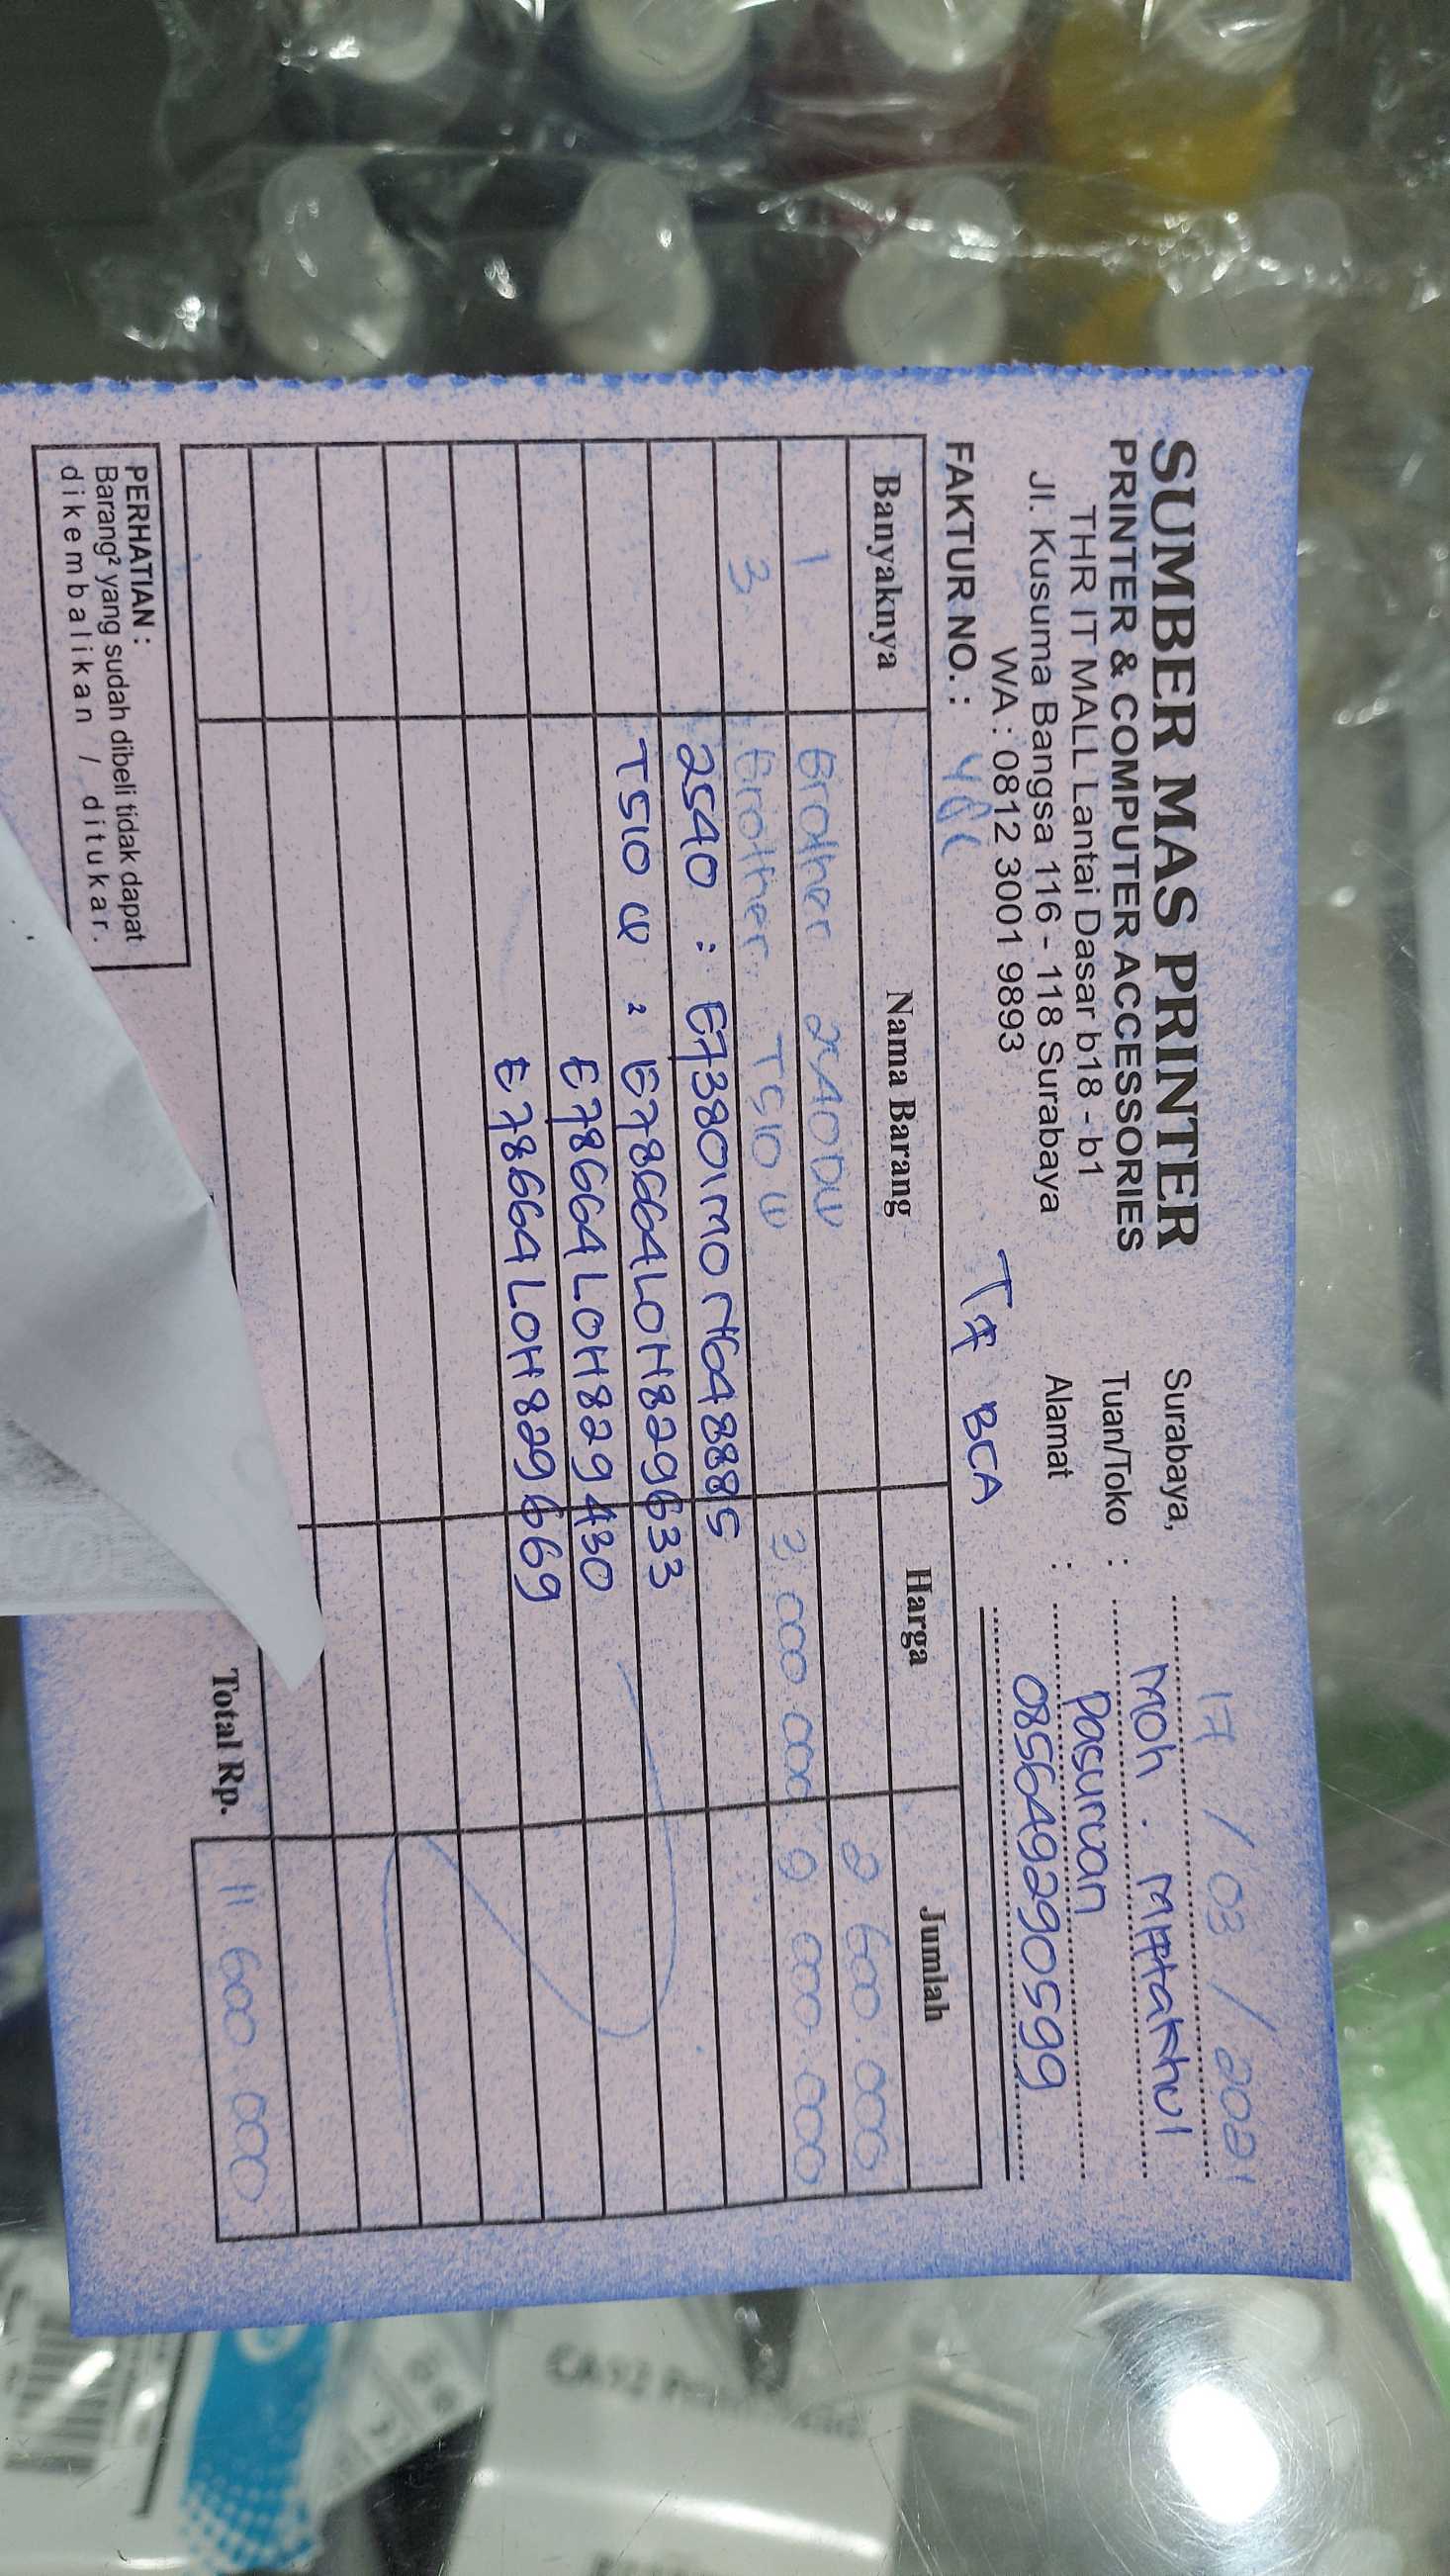 SUMBER MAS PRINTER
PRINTER & COMPUTER ACCESSORIES
THR IT MALL Lantai Dasar b18 - b1
Jl. Kusuma Bangsa 116 - 118 Surabaya
WA : 0812 3001 9893
Surabaya, 17 / 03 / 2021
Tuan/Toko : Moh. Miftakhul
Alamat : Pasuruan
085649290599
FAKTUR NO. :
TF BCA
Banyaknya Nama Barang Harga Jumlah
1 Brother 2540DW 2.600.000
3 Brother T510W 3.000.000 9.000.000
2540 : E73801M0N648885
T510W : E78664L0H829633
E78664L0H829430
E78664L0H829669
Total Rp. 11.600.000
PERHATIAN :
Barang² yang sudah dibeli tidak dapat
dikembalikan / ditukar.
CA92